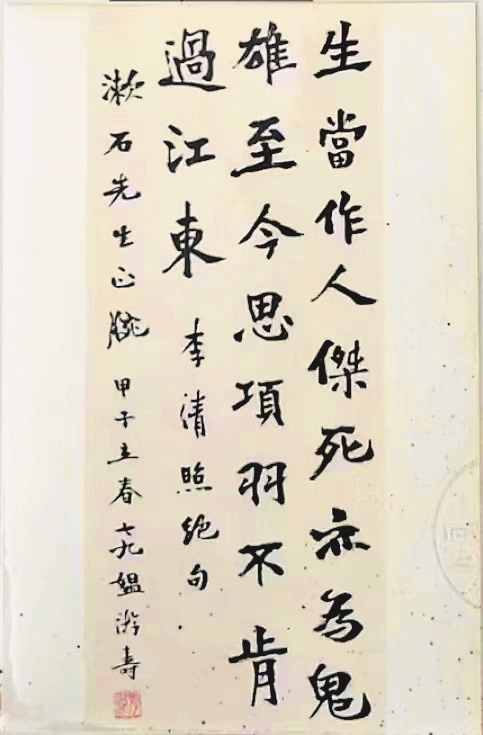 生當作人傑死亦為鬼
雄至今思項羽不肯
過江東 李清照絕句
漱石先生正腕 甲子立春七九媼游壽